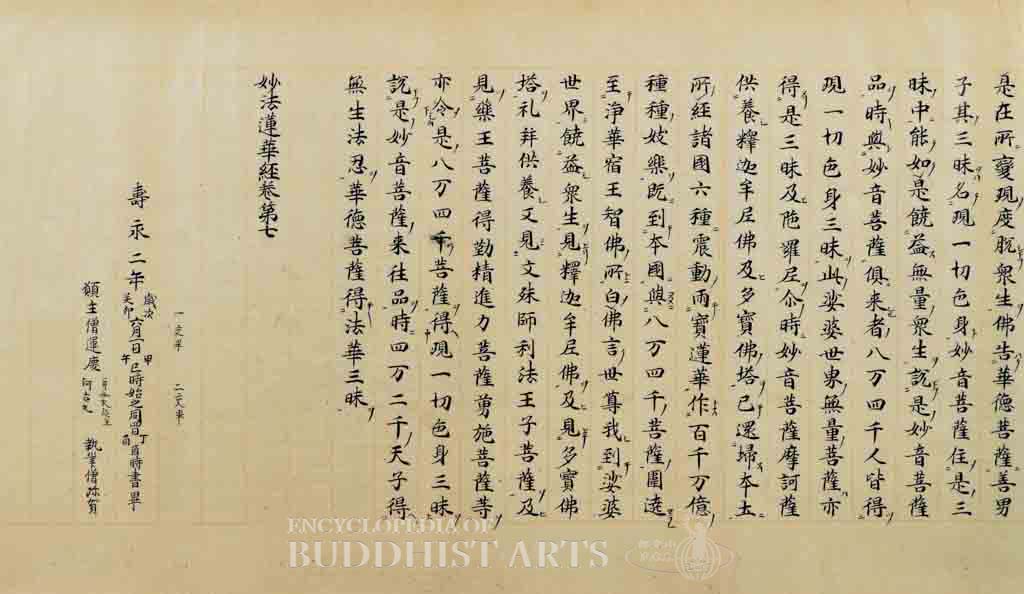 是在所變現度脫衆生佛告華德菩薩善男
子其三昧名現一切色身妙音菩薩住是三
昧中能如是饒益無量衆生說是妙音菩薩
品時與妙音菩薩俱来者八万四千人皆得
現一切色身三昧此娑婆世界無量菩薩亦
得是三昧及陁羅尼尒時妙音菩薩摩訶薩
供養釋迦牟尼佛及多寶佛塔已還歸本土
所經諸國六種震動雨寶蓮華作百千万億
種種妓樂旣到本國與八万四千菩薩圍遶
至淨華宿王智佛所白佛言世尊我到娑婆
世界饒益衆生見釋迦牟尼佛及見多寶佛
塔礼拜供養又見文殊師利法王子菩薩及
見藥王菩薩得勤精進力菩薩勇施菩薩等
亦令是八万四千菩薩得現一切色身三昧
說是妙音菩薩来往品時四万二千天子得
無生法忍華德菩薩得法華三昧
妙法蓮華經卷第七
一交畢 二交畢
壽永二年歲次癸卯六月一日甲午巳時始之同四日丁酉酉時書畢
願主僧運慶 執筆僧珎賀
ENCYCLOPEDIA OF
BUDDHIST ARTS